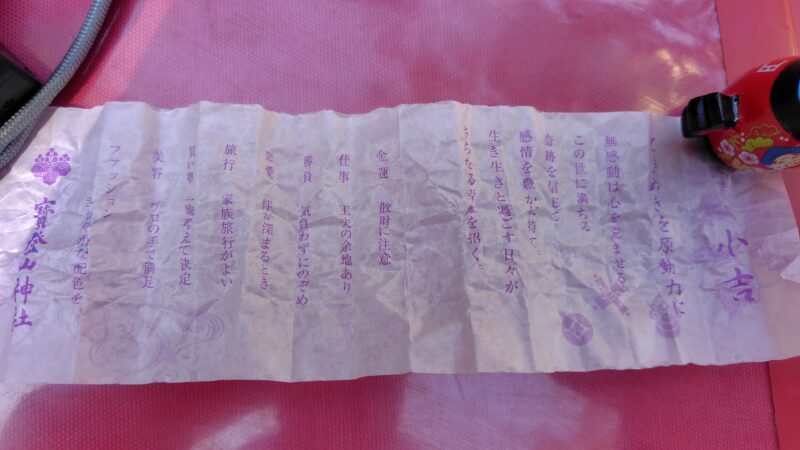 小吉
ときめきを原動力に
無感動は心を曇ませる
この世に満ちる
奇跡を信じて
感情を豊かに持て。
生き生きと過ごす日々が
さらなる幸運を招く。
金運 散財に注意
仕事 工夫の余地あり
勝負 気負わずにのぞめ
恋愛 絆が深まるとき
旅行 家族旅行がよい
買い物 一晩考えて決定
美容 プロの手で満足
ファッション
配色を
寶登山神社